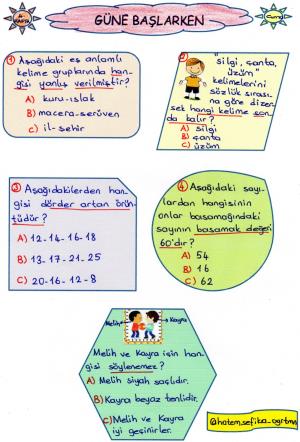 4. HAFTA
GÜNE BAŞLARKEN
Cuma
1 Aşağıdaki eş anlamlı
kelime gruplarında han-
gisi yanlış verilmiştir?
A) kuru-ıslak
B) macera-serüven
C) il-şehir
2
"silgi, çanta,
üzüm"
kelimelerini
sözlük sırası-
na göre dizer-
sek hangi kelime son-
da kalır?
A) silgi
B) çanta
C) üzüm
3 Aşağıdakilerden han-
gisi dörder artan örün-
tüdür?
A) 12-14-16-18
B) 13-17-21-25
C) 20-16-12-8
4 Aşağıdaki sayı-
lardan hangisinin
onlar basamağındaki
sayının basamak değeri
60'dır?
A) 54
B) 16
C) 62
Melih
Kayra
Melih ve Kayra için han-
gisi söylenemez?
A) Melih siyah saçlıdır.
B) Kayra beyaz tenlidir.
C) Melih ve Kayra
iyi geçinirler.